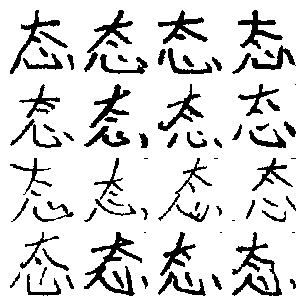 态态态态
态态态态
态态态态
态态态态